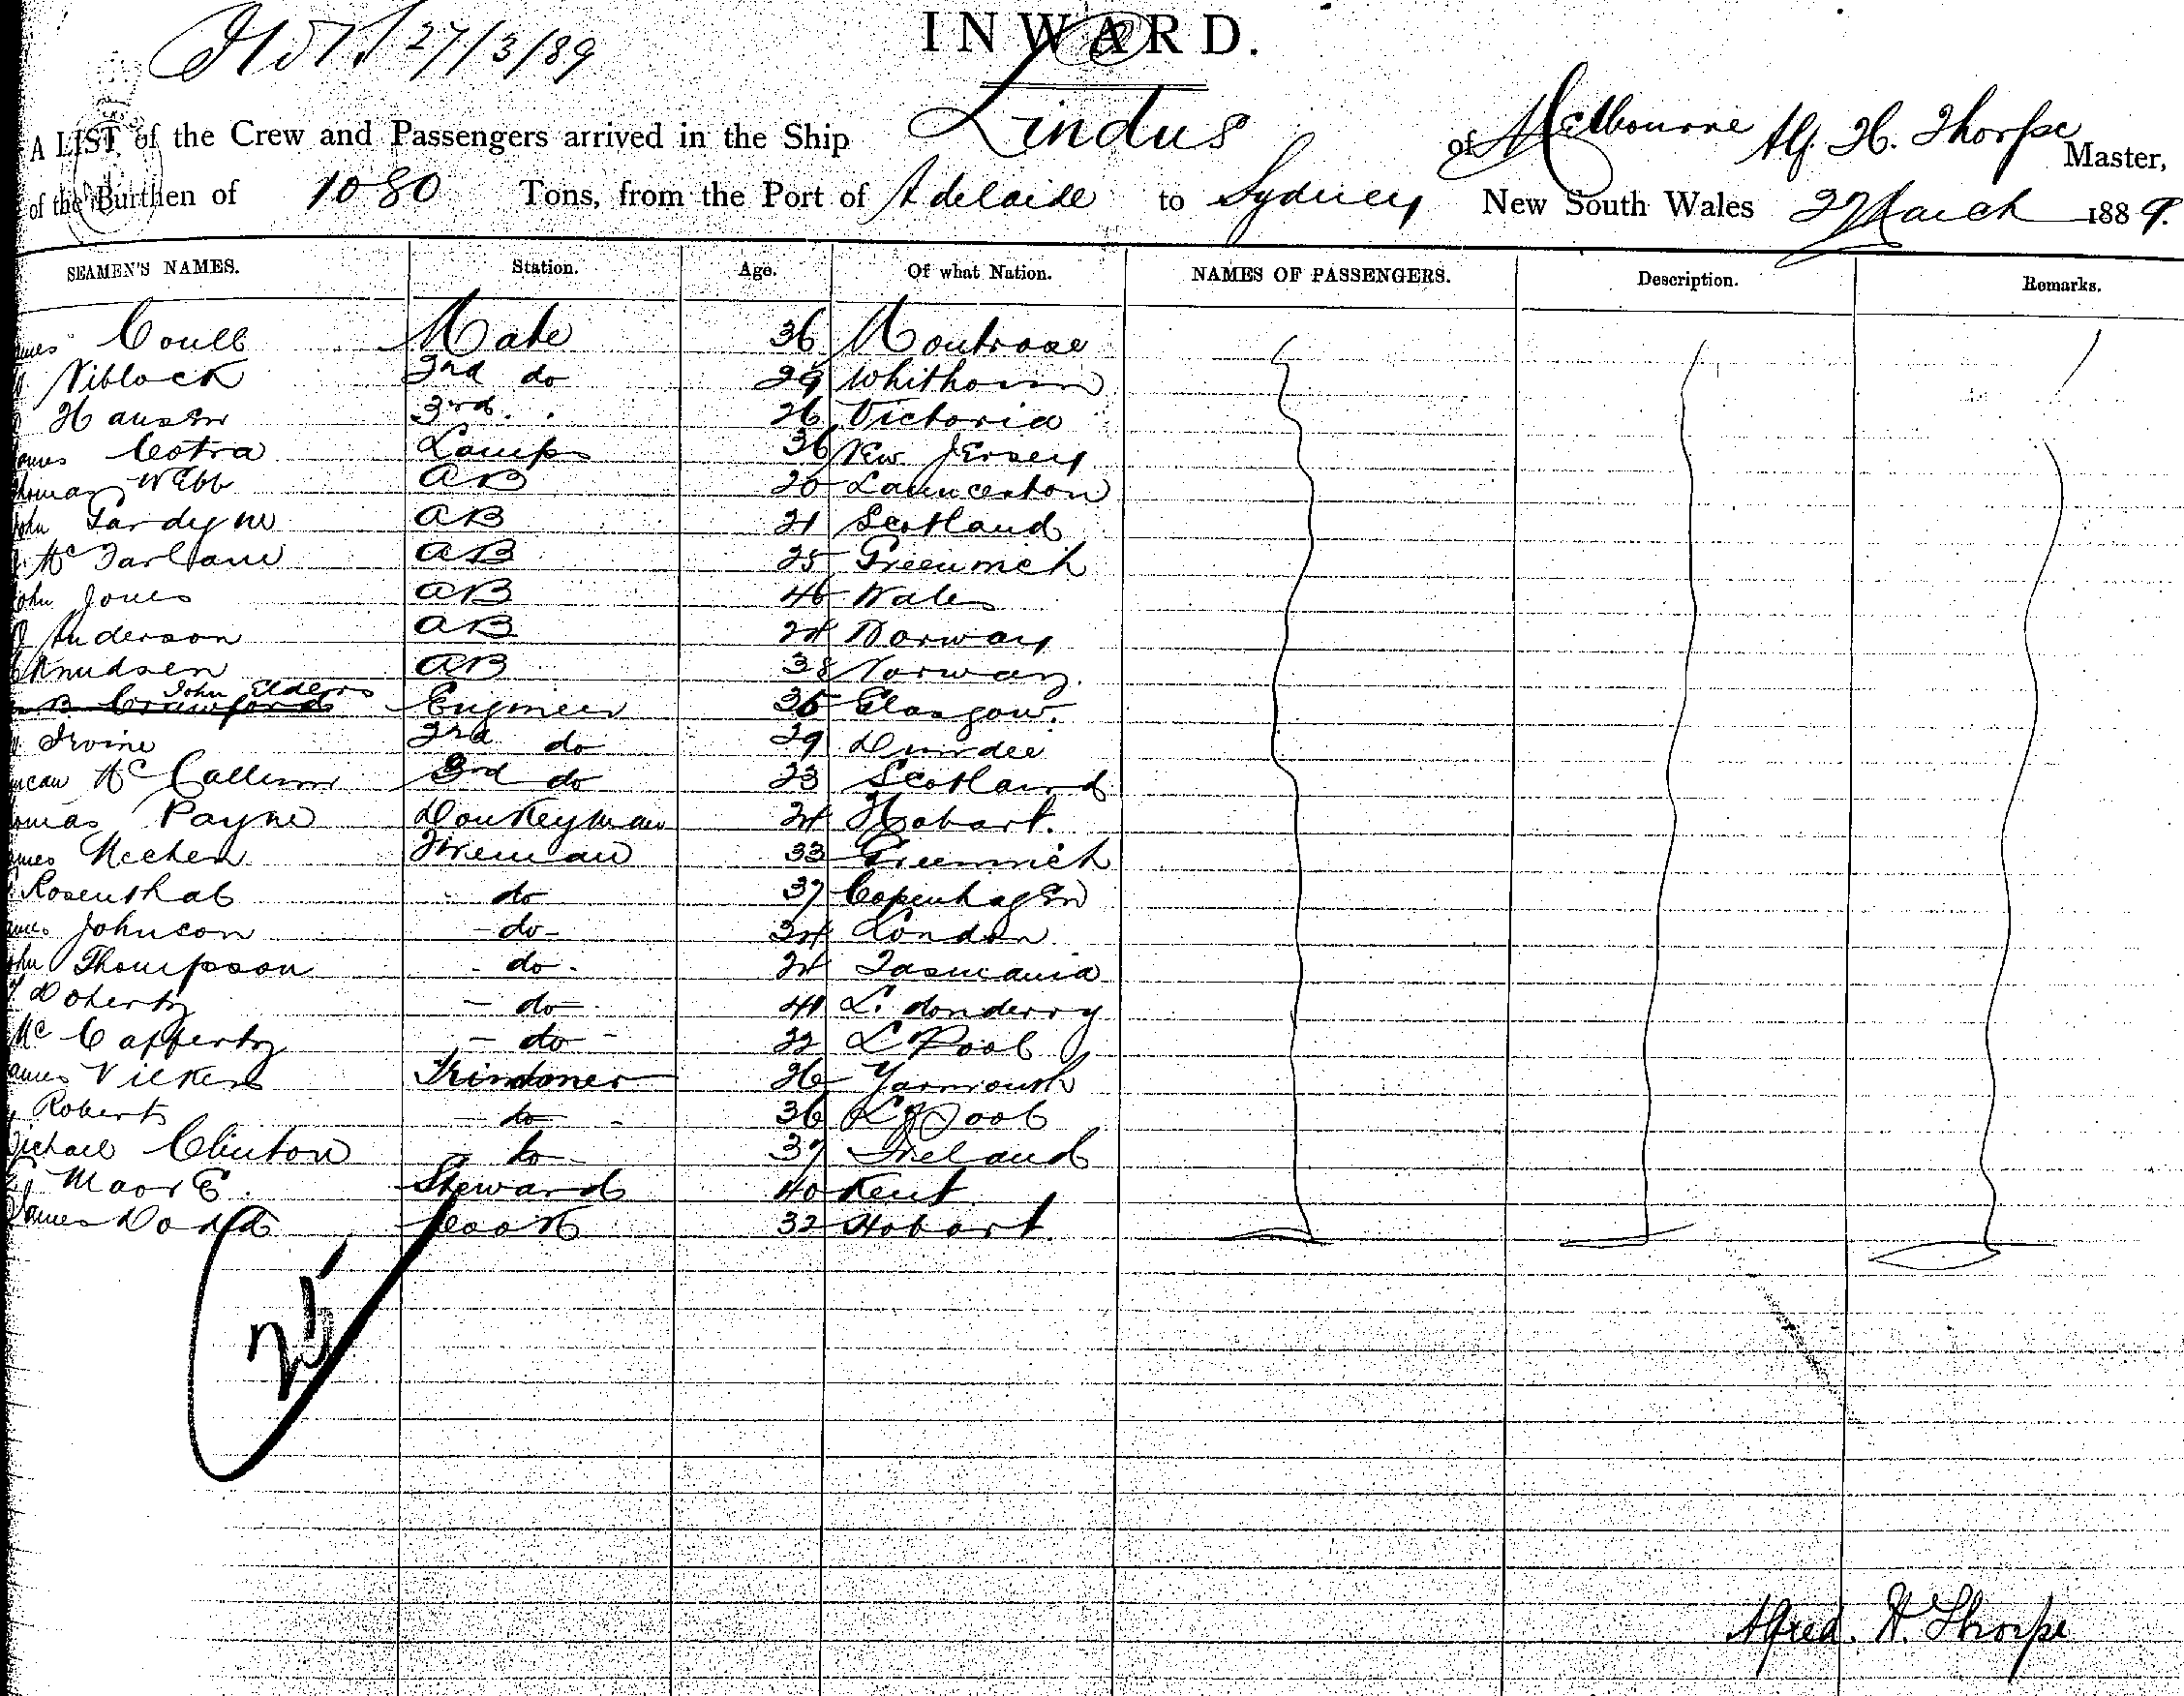 27/3/89
INWARD.
A LIST of the Crew and Passengers arrived in the Ship Lindus of Melbourne Alf. H. Thorpe Master,
of the Burthen of 1080 Tons, from the Port of Adelaide to Sydney New South Wales 27 March 1889.
SEAMEN'S NAMES. Station. Age. Of what Nation. NAMES OF PASSENGERS. Description. Remarks.
Coull Mate 36 Montrose
Niblock 2nd do 29 Whithorn
Hansen 3rd 26 Victoria
Cotra Lamps 36 New Jersey
Thomas Webb AB 20 Launceston
John Gardyne AB 21 Scotland
McFarlane AB 25 Greenwich
John Jones AB 46 Wales
Anderson AB 24 Norway
Knudsen AB 38 Norway.
John Elders
B. Crawford Engineer 35 Glasgow.
Irvine 2nd do 29 Dundee
McCallum 3rd do 23 Scotland
Thomas Payne Donkeyman 24 Hobart.
James Meehen Fireman 33 Greenwich
Rosenthal do 37 Copenhagen
James Johnson - do - 34 London
John Thompson - do - 24 Tasmania
Doherty - do - 41 L. donderry
McCafferty - do - 32 L Pool
James Vickers Trimmer 26 Yarmouth
Roberts - do - 36 L Pool
Michael Clinton - do - 37 Ireland
Moore. Steward 40 Kent
James Dodd Cook 32 Hobart.
Alfred. H. Thorpe